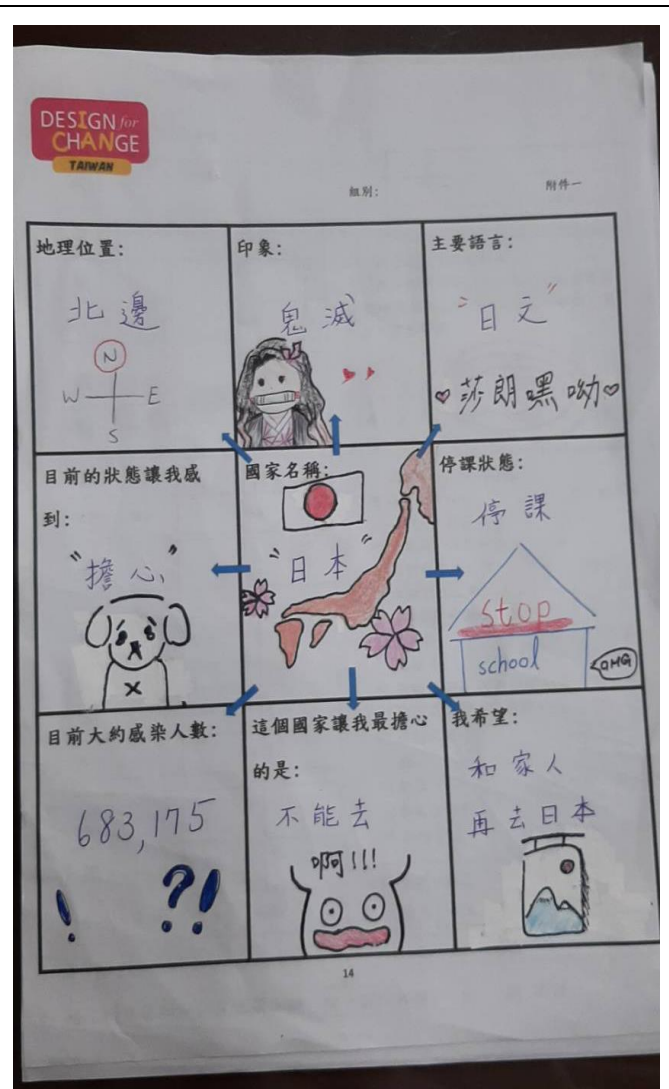 DESIGN for
CHANGE
TAIWAN
組別:
附件一
地理位置:
北邊
N
W E
S
印象:
鬼滅
主要語言:
"日文"
莎朗嘿呦
目前的狀態讓我感
到:
"擔心"
國家名稱:
"日本"
停課狀態:
停課
stop
school
OMG
目前大約感染人數:
683,175
! ?!
這個國家讓我最擔心
的是:
不能去
啊!!!
我希望:
和家人
再去日本
14